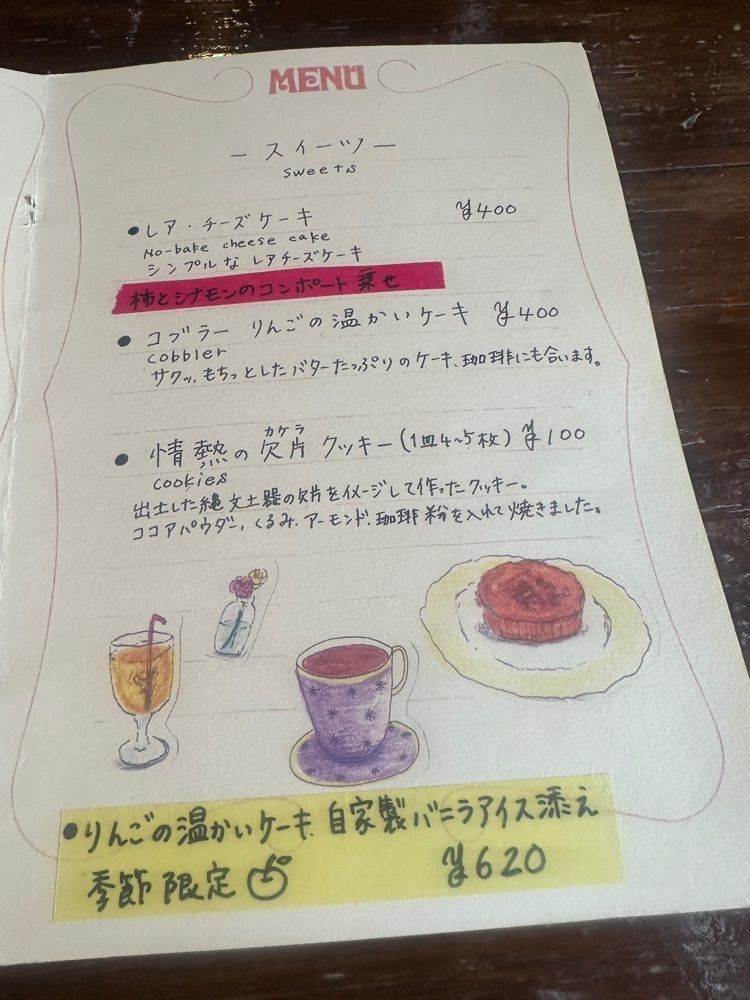 MENU
ースイーツー
sweets
●レア・チーズケーキ ¥400
No-bake cheese cake
シンプルな レアチーズケーキ
柿とシナモンのコンポート 乗せ
● コブラー りんごの温かいケーキ ¥400
cobbler
サクッ、もちっとしたバターたっぷりのケーキ、珈琲にも合います。
カケラ
● 情熱の欠片 クッキー(1皿4~5枚) ¥100
cookies
出土した縄文土器の欠片をイメージして作ったクッキー。
ココアパウダー、くるみ、アーモンド、珈琲粉を入れて焼きました。
●りんごの温かいケーキ、自家製バニラアイス添え
季節限定 ¥620